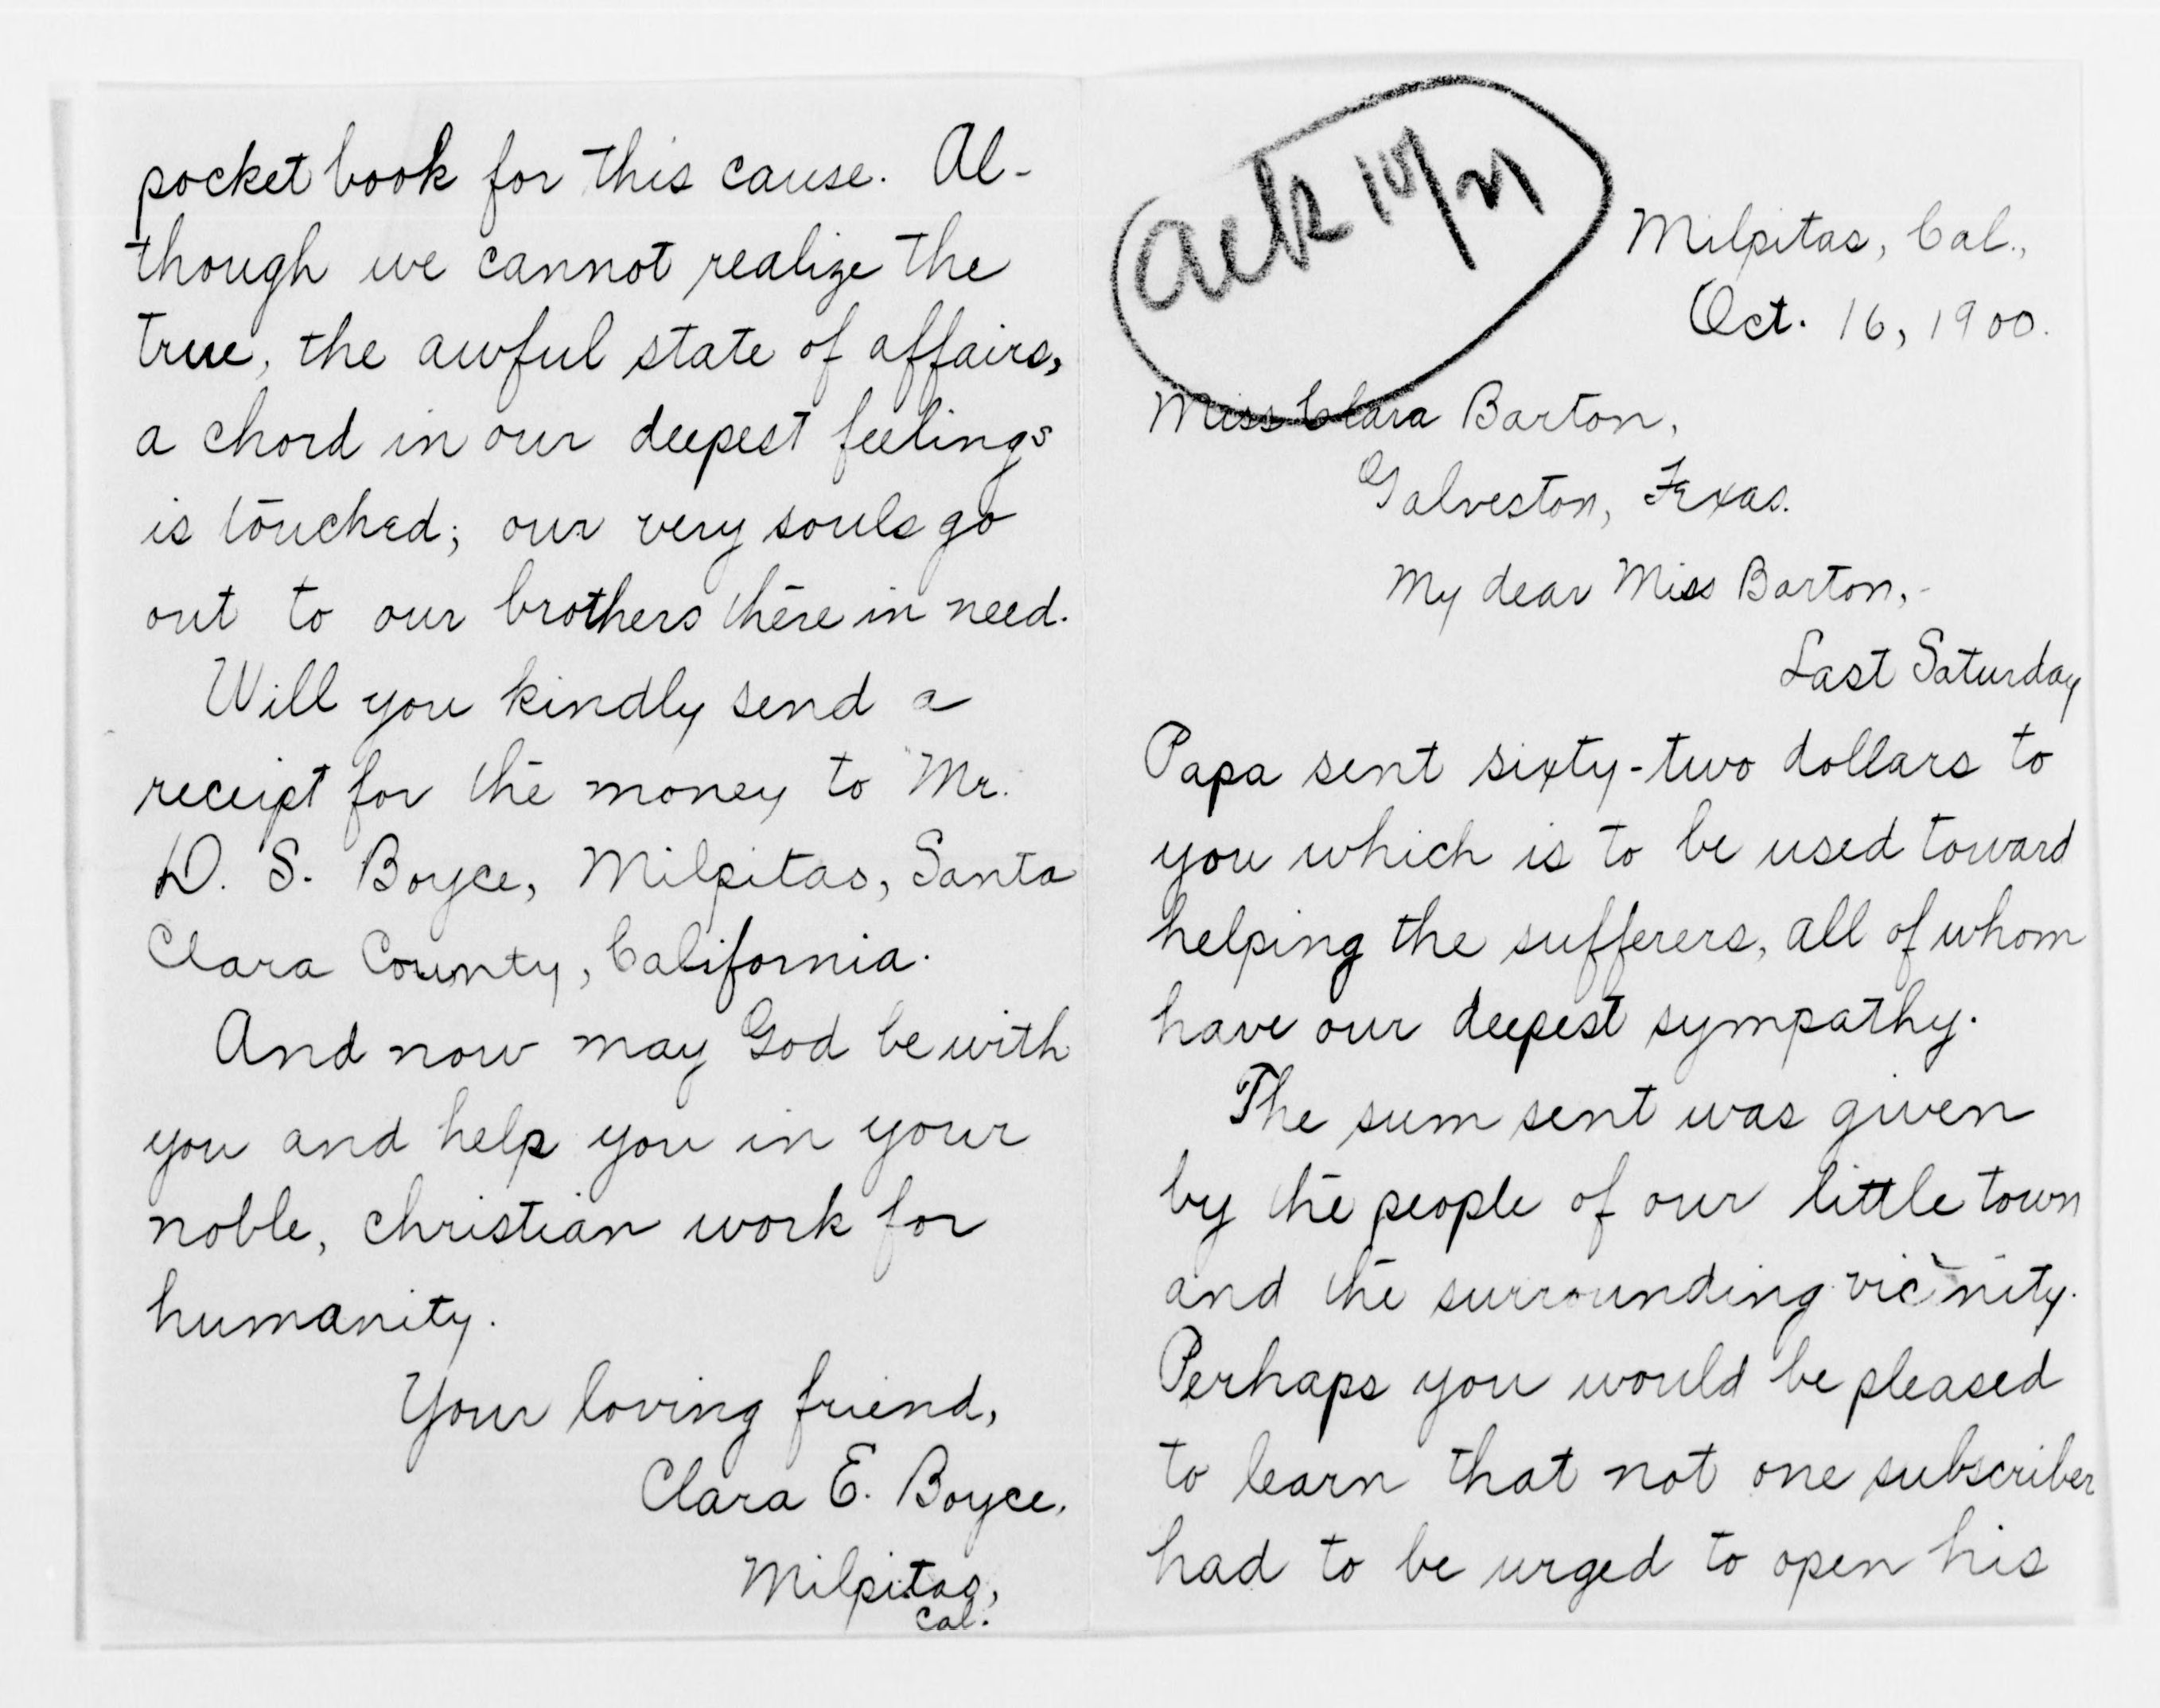 Ack 10/21
Milpitas, Cal.,
Oct. 16, 1900.
Miss Clara Barton,
Galveston, Texas.
My dear Miss Barton,-
Last Saturday
Papa sent sixty-two dollars to
you which is to be used toward
helping the sufferers, all of whom
have our deepest sympathy.
The sum sent was given
by the people of our little town
and the surrounding vicinity.
Perhaps you would be pleased
to learn that not one subscriber
had to be urged to open his
pocket book for this cause. Al-
though we cannot realize the
true, the awful state of affairs,
a chord in our deepest feelings
is touched; our very souls go
out to our brothers there in need.
Will you kindly send a
receipt for the money to Mr.
D. S. Boyce, Milpitas, Santa
Clara County, California.
And now may God be with
you and help you in your
noble, christian work for
humanity.
Your loving friend,
Clara E. Boyce,
Milpitas,
Cal.